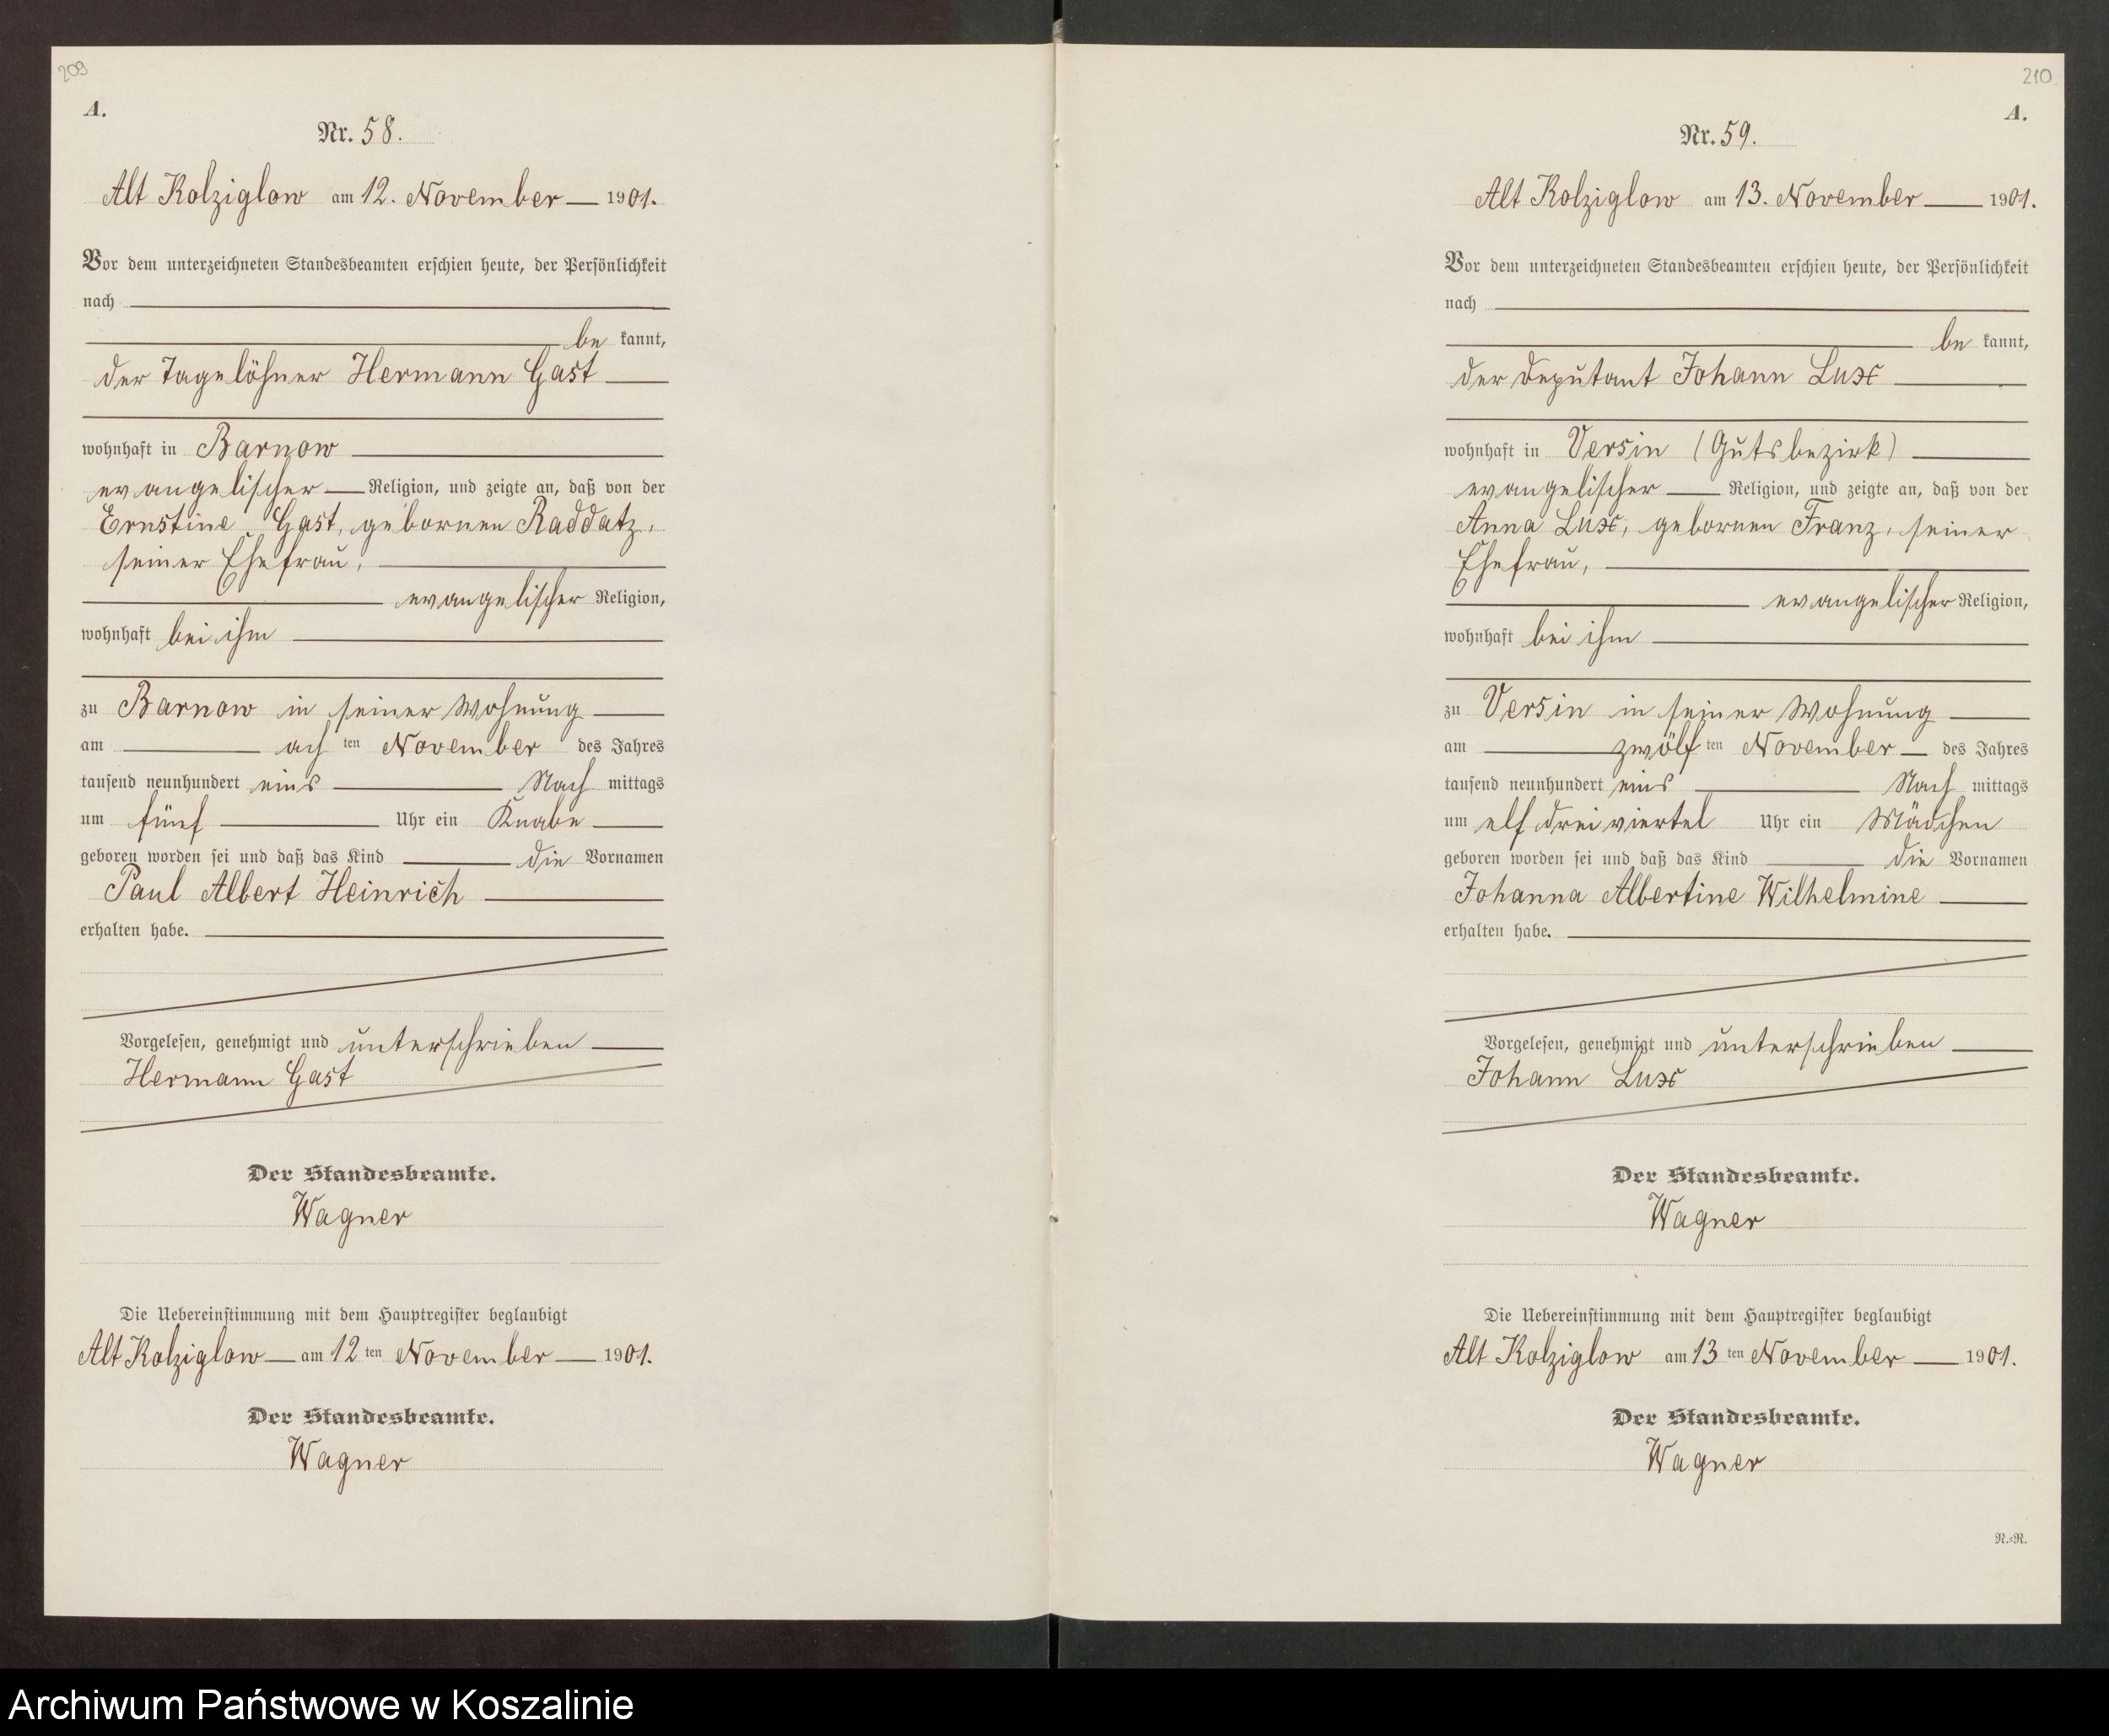 209
A.
Nr. 58.
Alt Kolziglow am 12. November 1901.
Vor dem unterzeichneten Standesbeamten erschien heute, der Persönlichkeit
nach
be kannt,
der Tagelöhner Hermann Gast
wohnhaft in Barnow
evangelischer Religion, und zeigte an, daß von der
Ernstine Gast, gebornen Raddatz,
seiner Ehefrau,
evangelischer Religion,
wohnhaft bei ihm
zu Barnow in seiner Wohnung
am ach ten November des Jahres
tausend neunhundert eins Nach mittags
um fünf Uhr ein Knabe
geboren worden sei und daß das Kind die Vornamen
Paul Albert Heinrich
erhalten habe.
Vorgelesen, genehmigt und unterschrieben
Hermann Gast
Der Standesbeamte.
Wagner
Die Uebereinstimmung mit dem Hauptregister beglaubigt
Alt Kolziglow am 12 ten November 1901.
Der Standesbeamte.
Wagner
210
A.
Nr. 59.
Alt Kolziglow am 13. November 1901.
Vor dem unterzeichneten Standesbeamten erschien heute, der Persönlichkeit
nach
be kannt,
der Deputant Johann Lux
wohnhaft in Versin (Gutsbezirk)
evangelischer Religion, und zeigte an, daß von der
Anna Lux, gebornen Franz, seiner
Ehefrau,
evangelischer Religion,
wohnhaft bei ihm
zu Versin in seiner Wohnung
am zwölf ten November des Jahres
tausend neunhundert eins Nach mittags
um elf dreiviertel Uhr ein Mädchen
geboren worden sei und daß das Kind die Vornamen
Johanna Albertine Wilhelmine
erhalten habe.
Vorgelesen, genehmigt und unterschrieben
Johann Lux
Der Standesbeamte.
Wagner
Die Uebereinstimmung mit dem Hauptregister beglaubigt
Alt Kolziglow am 13 ten November 1901.
Der Standesbeamte.
Wagner
N.=R.
Archiwum Państwowe w Koszalinie